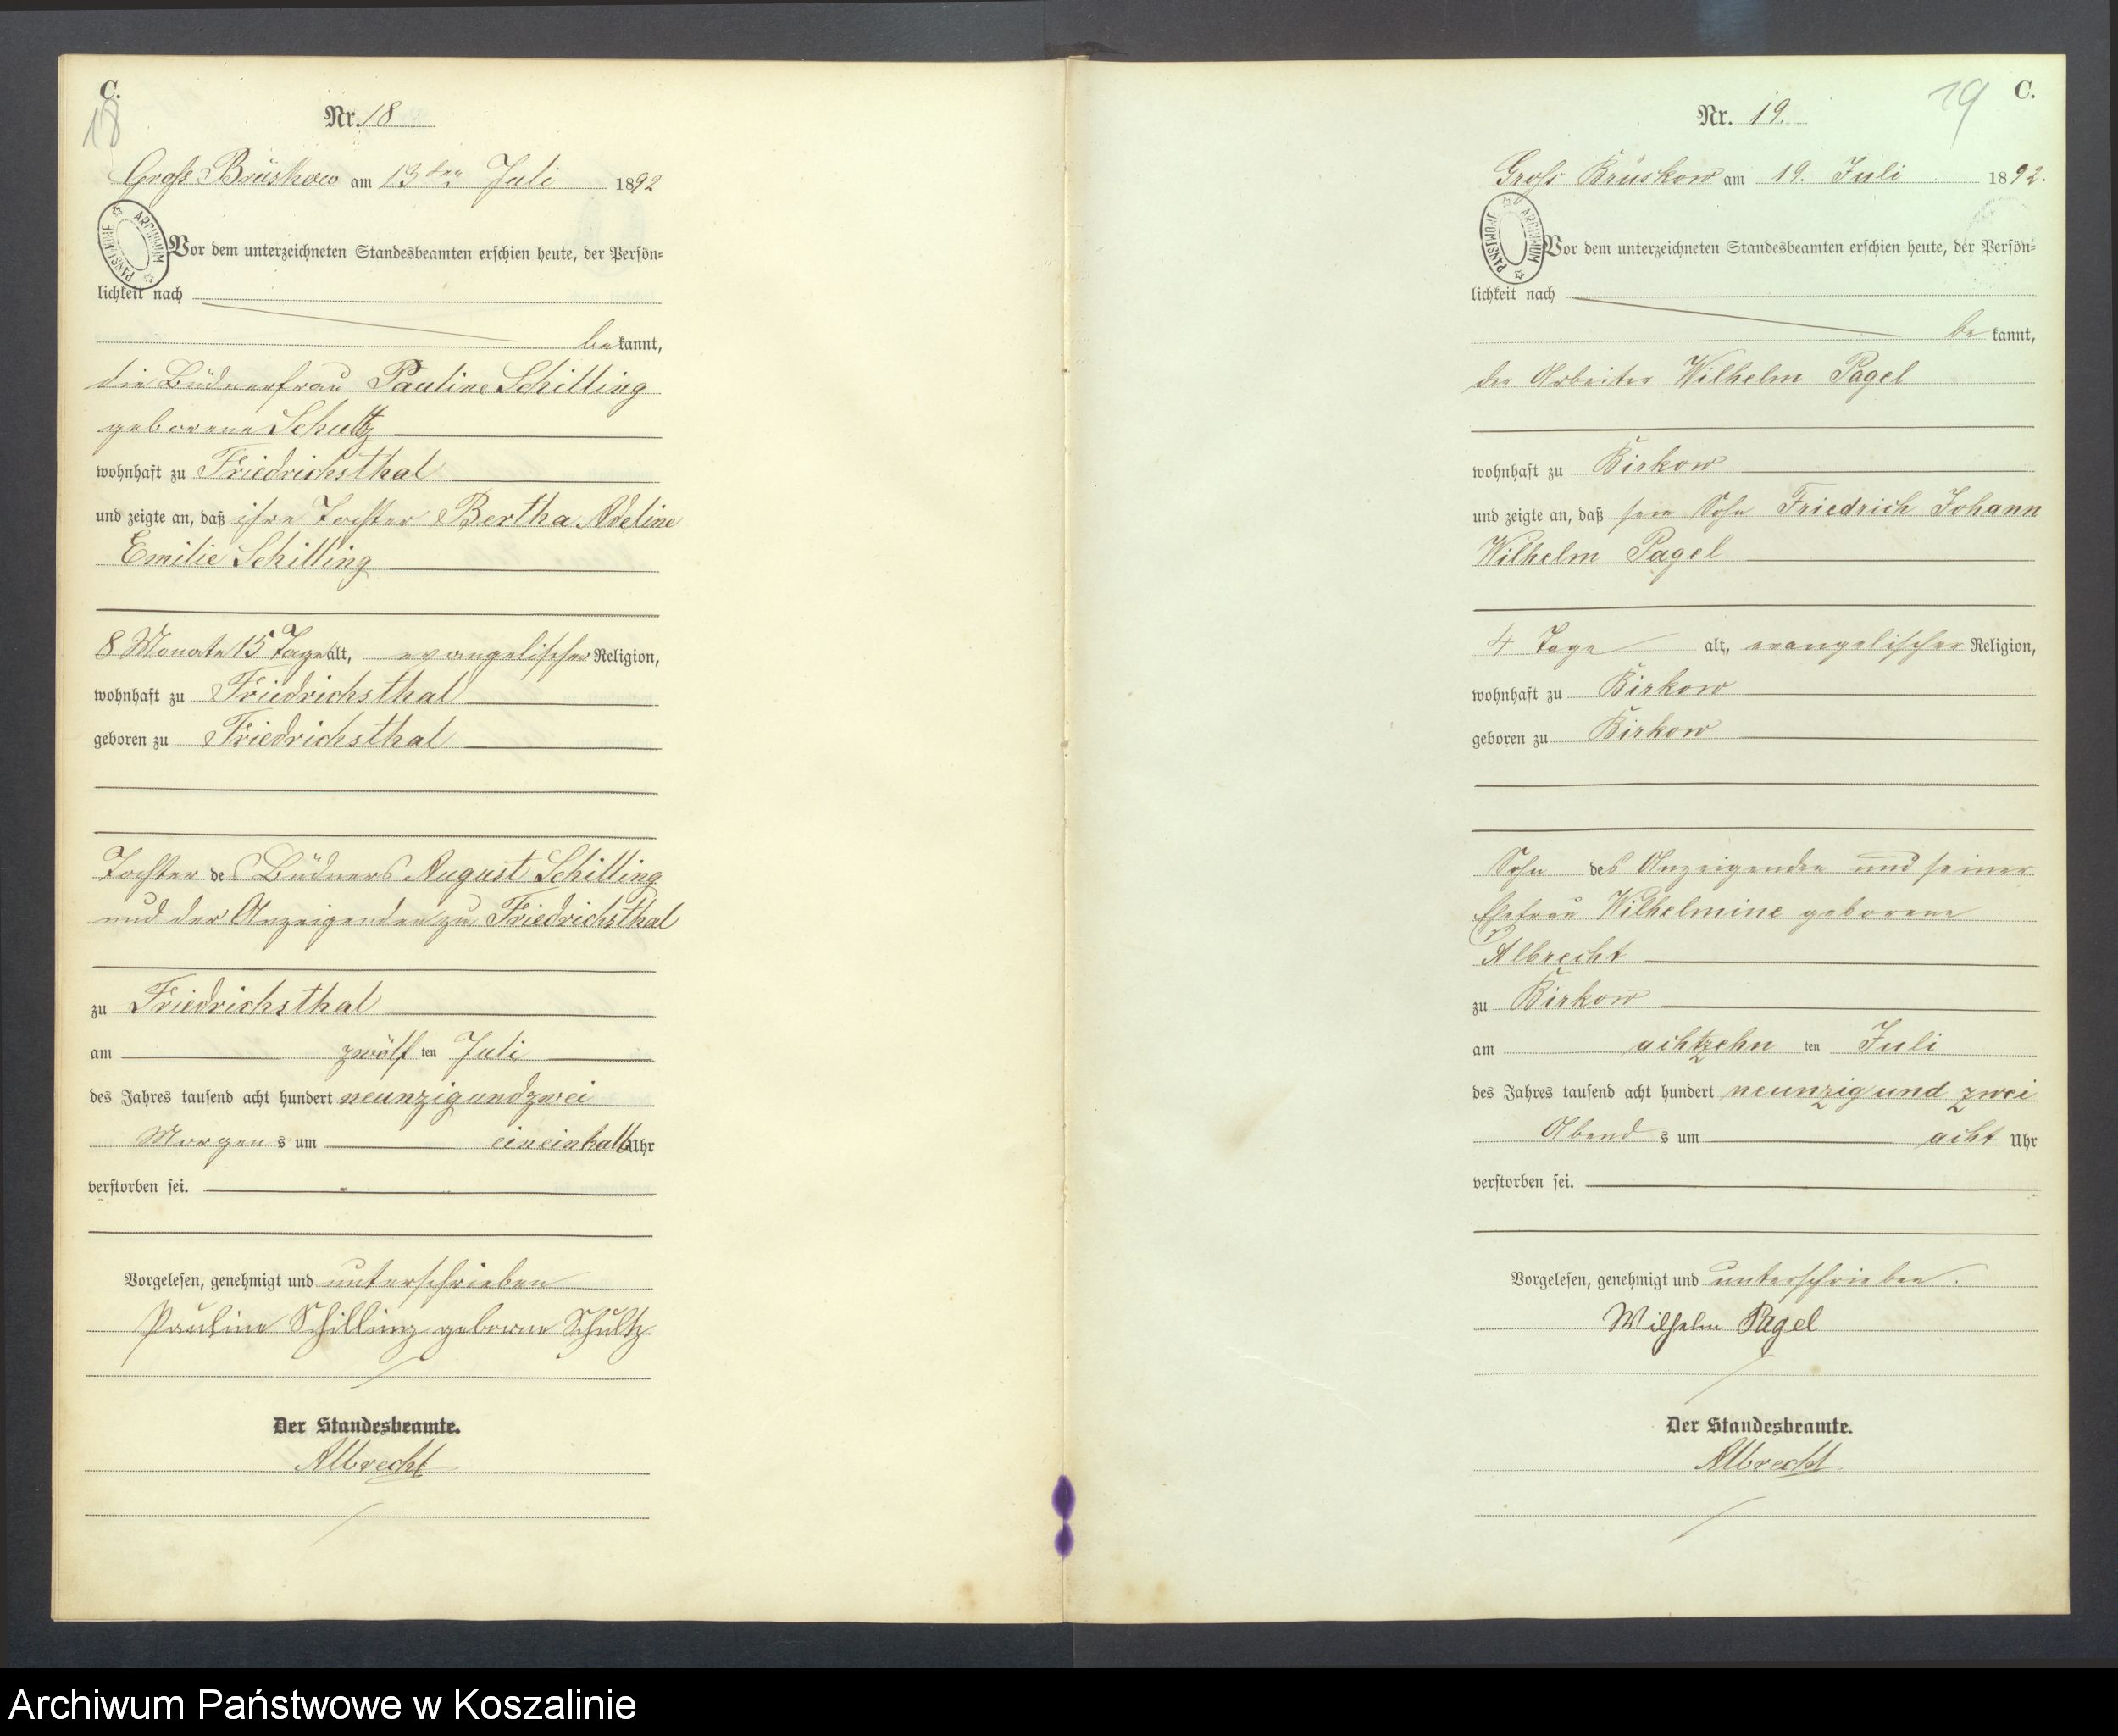 C.
18
Nr. 18
Groß Brüskow am 13ten Juli 1892
ARCHIWUM PAŃSTWOWE
Vor dem unterzeichneten Standesbeamten erschien heute, der Persön-
lichkeit nach
bekannt,
die Büdnerfrau Pauline Schilling
geborene Schultz
wohnhaft zu Friedrichsthal
und zeigte an, daß ihre Tochter Bertha Adeline
Emilie Schilling
8 Monate 15 Tage alt, evangelischer Religion,
wohnhaft zu Friedrichsthal
geboren zu Friedrichsthal
Tochter des Büdners August Schilling
und der Anzeigenden zu Friedrichsthal
zu Friedrichsthal
am zwölf ten Juli
des Jahres tausend acht hundert neunzig und zwei
Morgens um eineinhalb Uhr
verstorben sei.
Vorgelesen, genehmigt und unterschrieben
Pauline Schilling geborne Schultz
Der Standesbeamte.
Albrecht
19
C.
Nr. 19.
Groß Brüskow am 19. Juli 1892.
ARCHIWUM PAŃSTWOWE
Vor dem unterzeichneten Standesbeamten erschien heute, der Persön-
lichkeit nach
be kannt,
der Arbeiter Wilhelm Pagel
wohnhaft zu Birkow
und zeigte an, daß sein Sohn Friedrich Johann
Wilhelm Pagel
4 Tage alt, evangelischer Religion,
wohnhaft zu Birkow
geboren zu Birkow
Sohn des Anzeigenden und seiner
Ehefrau Wilhelmine geborene
Albrecht
zu Birkow
am achtzehn ten Juli
des Jahres tausend acht hundert neunzig und zwei
Abend s um acht Uhr
verstorben sei.
Vorgelesen, genehmigt und unterschrieben.
Wilhelm Pagel
Der Standesbeamte.
Albrecht
Archiwum Państwowe w Koszalinie